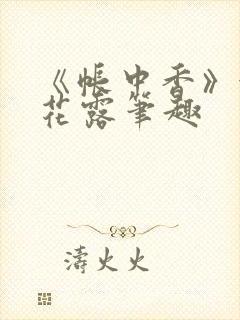 《帐中香》
花露笔趣
涛火火